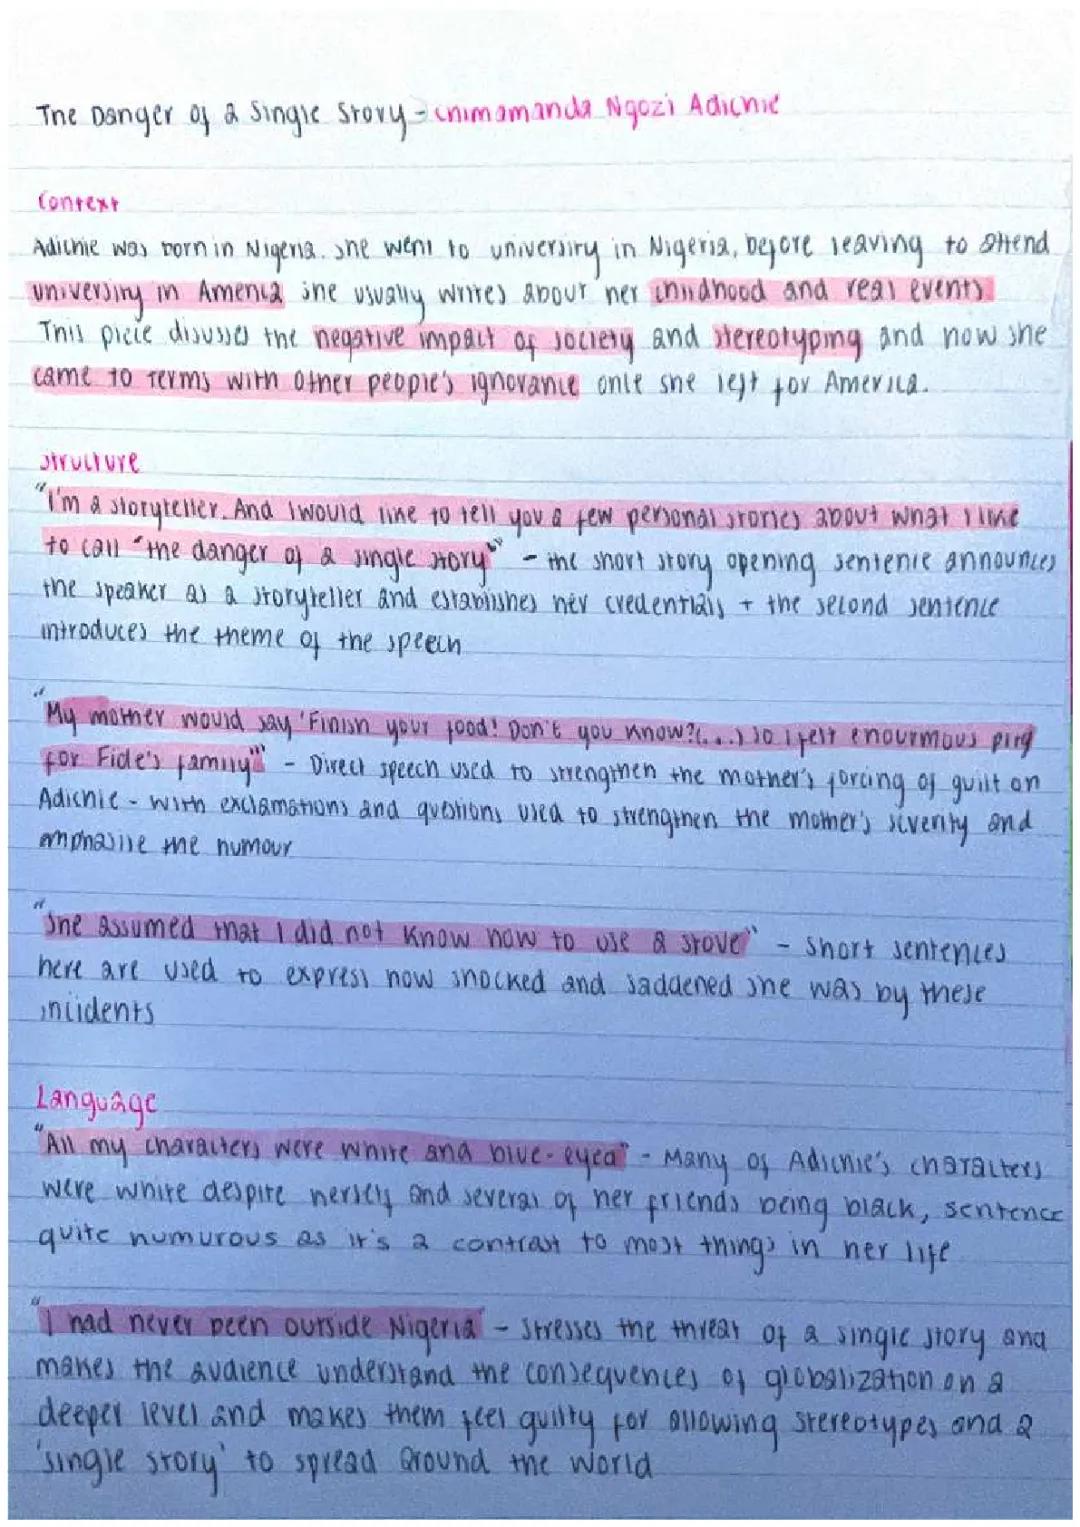 The Danger of a Single Story - Chimamanda Ngozi Adichie
Context
Adichie was born in Nigeria. She went to university in Nigeria, before leaving to attend
university in America she usually writes about her childhood and real events
This piece disusses the negative impact of society and stereotyping and how she
came to terms with other people's ignorance once she left for America.
Structure
"I'm a storyteller. And I would like to tell you a few personal stories about what I like
to call "the danger of a single story"" - the short story opening sentence announces
the speaker as a storyteller and establishes her credentials + the second sentence
introduces the theme of the speech
"My mother would say 'Finish your food! Don't you know?(...) so I felt enourmous pity
for Fide's family"" - Direct speech used to strengthen the mother's forcing of guilt on
Adichie - with exclamations and questions used to strengthen the mother's severity and
emphasise the humour
"She assumed that I did not know how to use a stove" - Short sentences
here are used to express how shocked and saddened she was by these
incidents
Language
"All my characters were white and blue-eyed" - Many of Adichie's characters
were white despite herself and several of her friends being black, sentence
quite humurous as it's a contrast to most things in her life
"I had never been outside Nigeria - Stresses the threat of a single story and
makes the audience understand the consequences of globalization on a
deeper level and makes them feel guilty for allowing stereotypes and a
'single story' to spread around the world